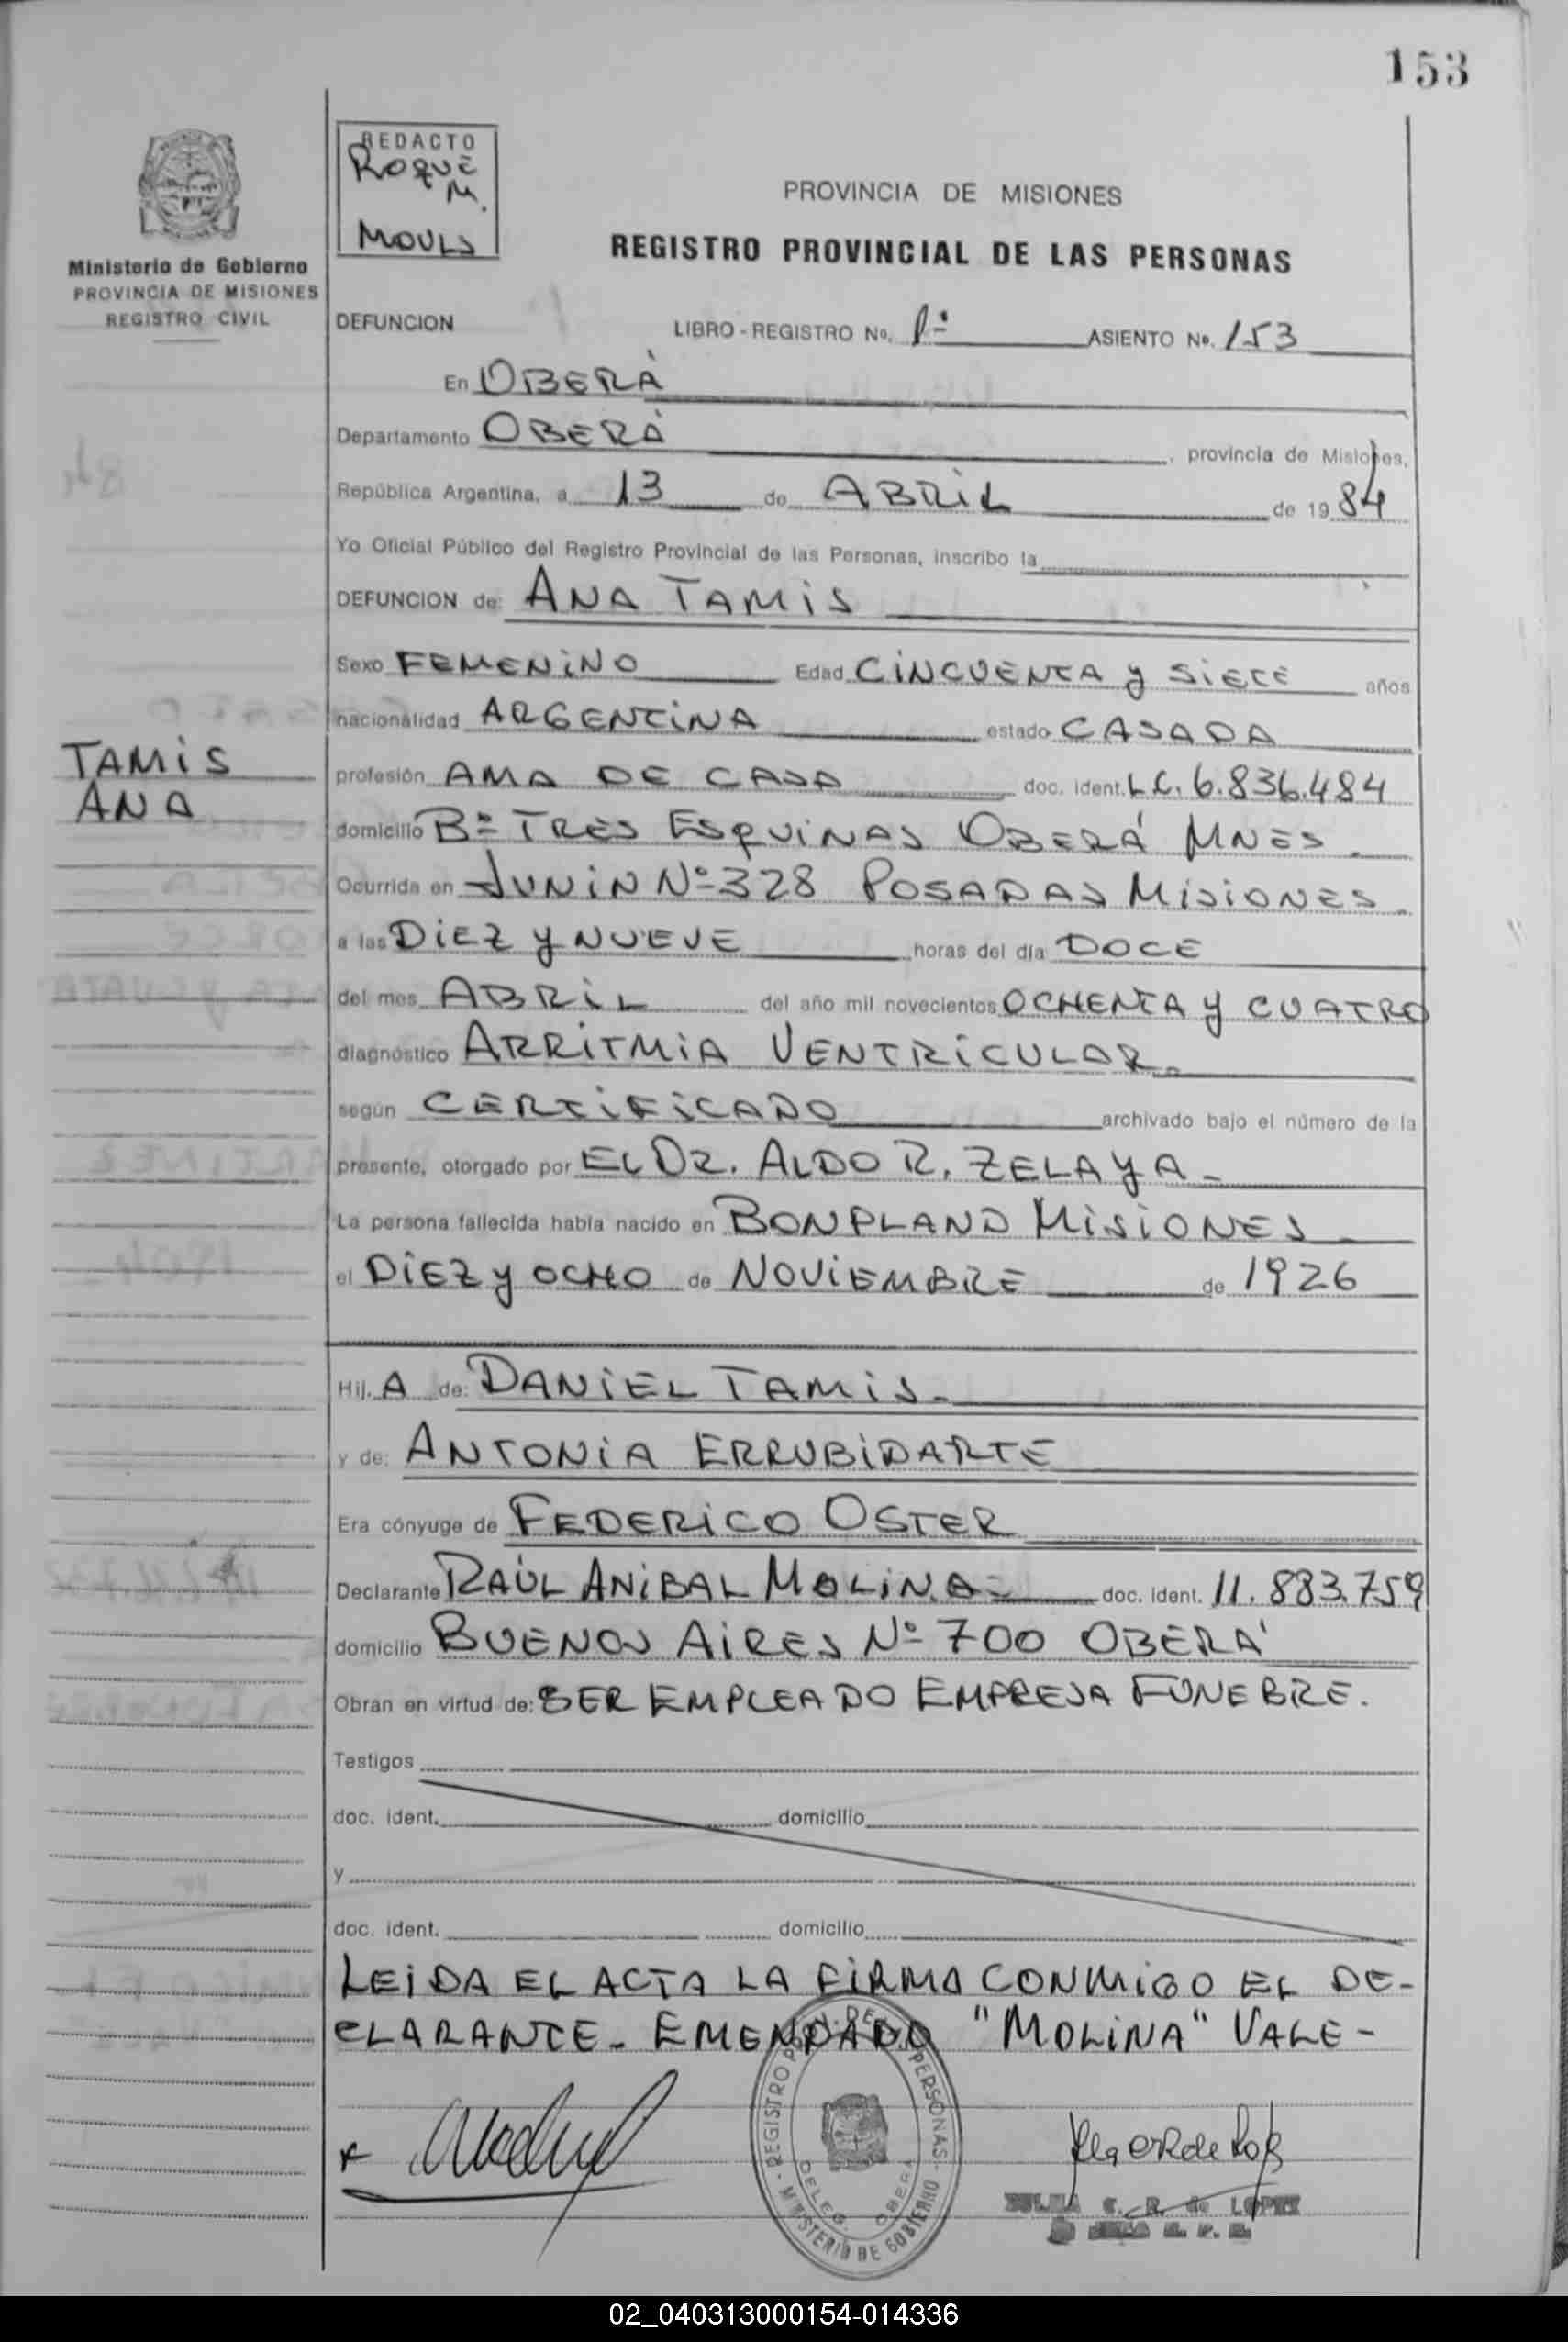 153
REDACTO
ROQUE
M.
MOULS
Ministerio de Gobierno
PROVINCIA DE MISIONES
REGISTRO CIVIL
PROVINCIA DE MISIONES
REGISTRO PROVINCIAL DE LAS PERSONAS
DEFUNCION LIBRO - REGISTRO No. 1º ASIENTO No. 153
En OBERÁ
Departamento OBERÁ , provincia de Misiones,
República Argentina, a 13 de ABRIL de 19 84
Yo Oficial Público del Registro Provincial de las Personas, inscribo la
DEFUNCION de: ANA TAMIS
Sexo FEMENINO Edad CINCUENTA y SIETE años
nacionalidad ARGENTINA estado CASADA
TAMIS
ANA
profesión AMA DE CASA doc. ident. L.C. 6.836.484
domicilio Bº TRES ESQUINAS OBERÁ MNES.
Ocurrida en JUNIN Nº 328 POSADAS MISIONES.
a las DIEZ y NUEVE horas del día DOCE
del mes ABRIL del año mil novecientos OCHENTA y CUATRO
diagnóstico ARRITMIA VENTRICULAR.
según CERTIFICADO archivado bajo el número de la
presente, otorgado por EL DR. ALDO R. ZELAYA -
La persona fallecida había nacido en BONPLAND MISIONES
el DIEZ y OCHO de NOVIEMBRE de 1926
Hij. A de: DANIEL TAMIS -
y de: ANTONIA ERRUBIDARTE
Era cónyuge de FEDERICO OSTER
Declarante RAÚL ANIBAL MOLINA - doc. ident. 11.883.759
domicilio BUENOS AIRES Nº 700 OBERÁ
Obran en virtud de: SER EMPLEADO EMPRESA FUNEBRE.
Testigos
doc. ident. domicilio
y
doc. ident. domicilio
LEIDA EL ACTA LA FIRMA CONMIGO EL DE-
CLARANTE - EMENDADO "MOLINA" VALE -
REGISTRO PCIAL. DE LAS PERSONAS - MINISTERIO DE GOBIERNO
DELEG. OBERA
ZULMA C. R. de LOPEZ
02_040313000154-014336